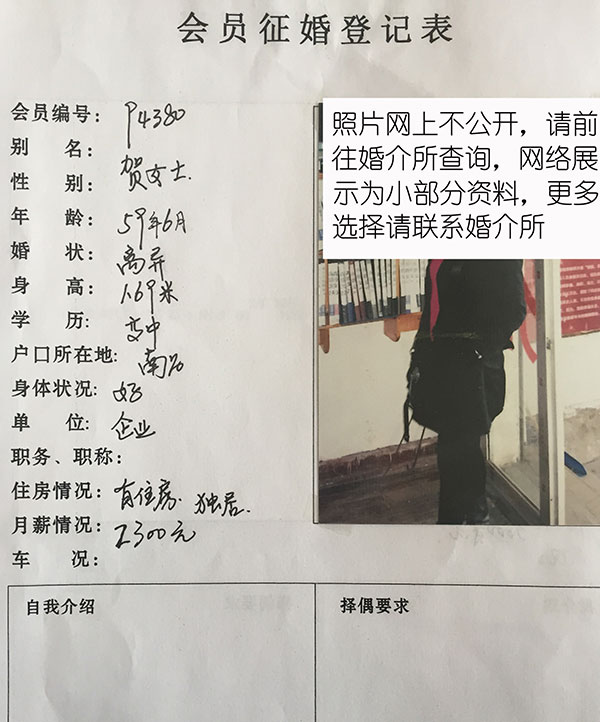 会员征婚登记表
会员编号: P4380
别 名:
性 别: 贺女士.
年 龄: 59年6月
婚 状: 离异
身 高: 1.69米
学 历: 高中
户口所在地: 南召
身体状况: 好
单 位: 企业
职务、职称:
住房情况: 有住房. 独居.
月薪情况: 2300元
车 况:
照片网上不公开，请前
往婚介所查询，网络展
示为小部分资料，更多
选择请联系婚介所
自我介绍
择偶要求